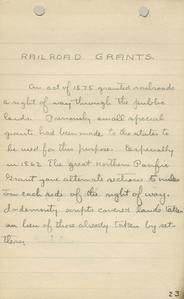 RAILROAD GRANTS.
An act of 1875 granted railroads
a right of way through the public
lands. Formerly small special
grants had been made to the states to
be used for this purpose. Especially
in 1862 The great Northern Pacific
Grant gave alternate sections
on each side of the right of way.
Indemnity scripts covered lands taken
in lieu of those already taken by set-
tlers.
23